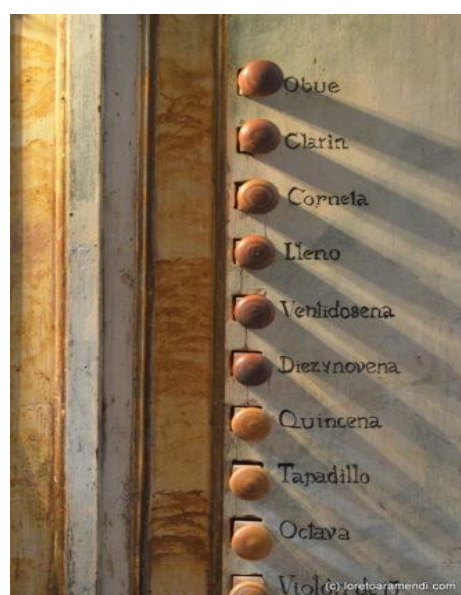 Obue
Clarin
Corneta
Lleno
Ventidosena
Diezynovena
Quincena
Tapadillo
Octava
(c) loretoaramendi.com